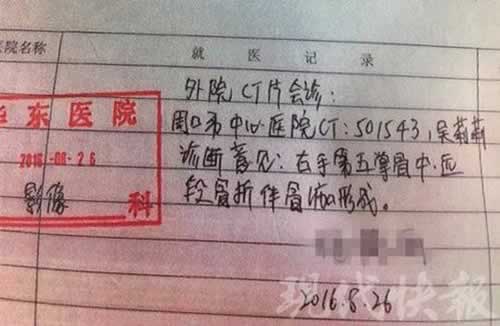 医院名称
就医记录
外院CT片会诊:
周口市中心医院CT:501543,吴莉莉
诊断意见:右手第五掌骨中.远
段骨折伴骨痂形成。
华东医院
2016-08-26
影像 科
2016.8.26
现代快报